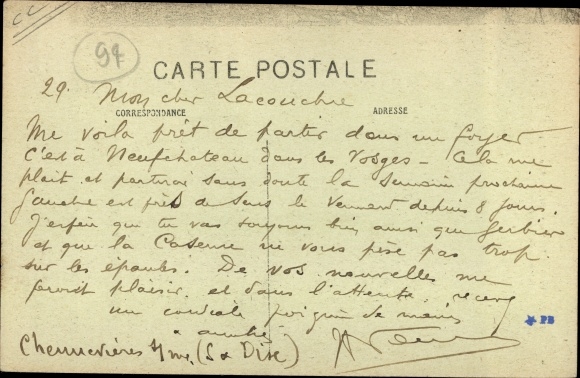 94
CARTE POSTALE
29. Mon cher Lacouchie
CORRESPONDANCE
ADRESSE
Me voila prêt de partir dans un foyer
c'est à Neufchateau dans les Vosges - Cela me
plait et partirai sans doute la semaine prochaine
Gauche est près de Sens le Venant depuis 8 jours.
J'espère que tu vas toujours bien ainsi que Gerbier
et que la Caserne ne vous pèse pas trop
sur les épaules. De vos nouvelles me
feront plaisir et dans l'attente, recevez
une cordiale poignée de mains
amitié
Chennevières s/ me (S & Oise)
PB